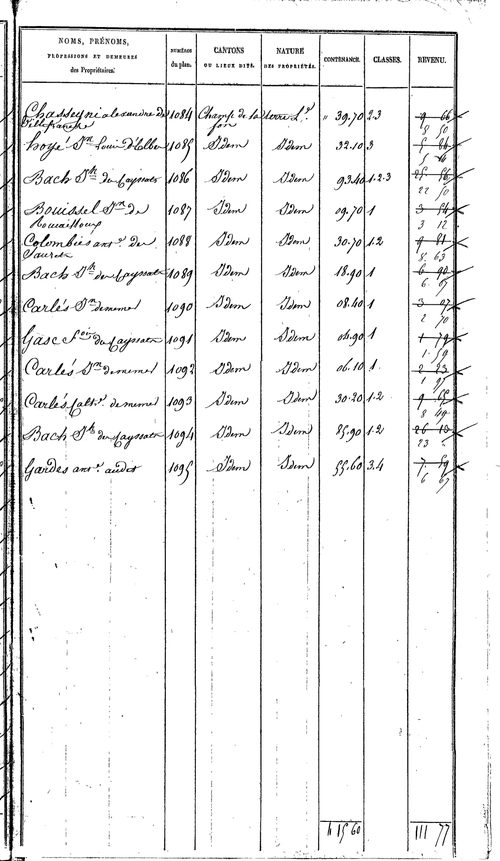 NOMS, PRÉNOMS, PROFESSIONS ET DEMEURES des Propriétaires. NUMÉROS du plan. CANTONS OU LIEUX DITS. NATURE DES PROPRIÉTÉS. CONTENANCE. CLASSES. REVENU.
Chasseyni alexandre de 1084 Champ de la terre L. " 39.70 2.3 9 66
Villefranche fon 8 50
jn Louis 1085 Idem Idem 32.10 3
Bach Jph de Cayssate 1086 Idem Idem 93.40 1.2.3
22 50
Bouissel Jn de 1087 Idem Idem 09.70 1 3 54
3 12
Colombiés ant. de 1088 Idem Idem 30.70 1.2 9 81
8. 63
Bach Jph de Cayssate 1089 Idem Idem 18.90 1 6 90
6 07
Carlés Jn de meme 1090 Idem Idem 08.40 1 3 07
2 70
Gasc de Cayssate 1091 Idem Idem 04.90 1 1 79
1. 59
Carlés de meme 1092 Idem Idem 06.10 1. 2 23
1 97
Carlés de meme 1093 Idem Idem 30.20 1.2 9 65
8 49
Bach Jph de Cayssate 1094 Idem Idem 85.90 1.2 26 10
23
Gardes ant. 1095 Idem Idem 55.60 3.4 7. 59
6 67
4 15 60 111 77